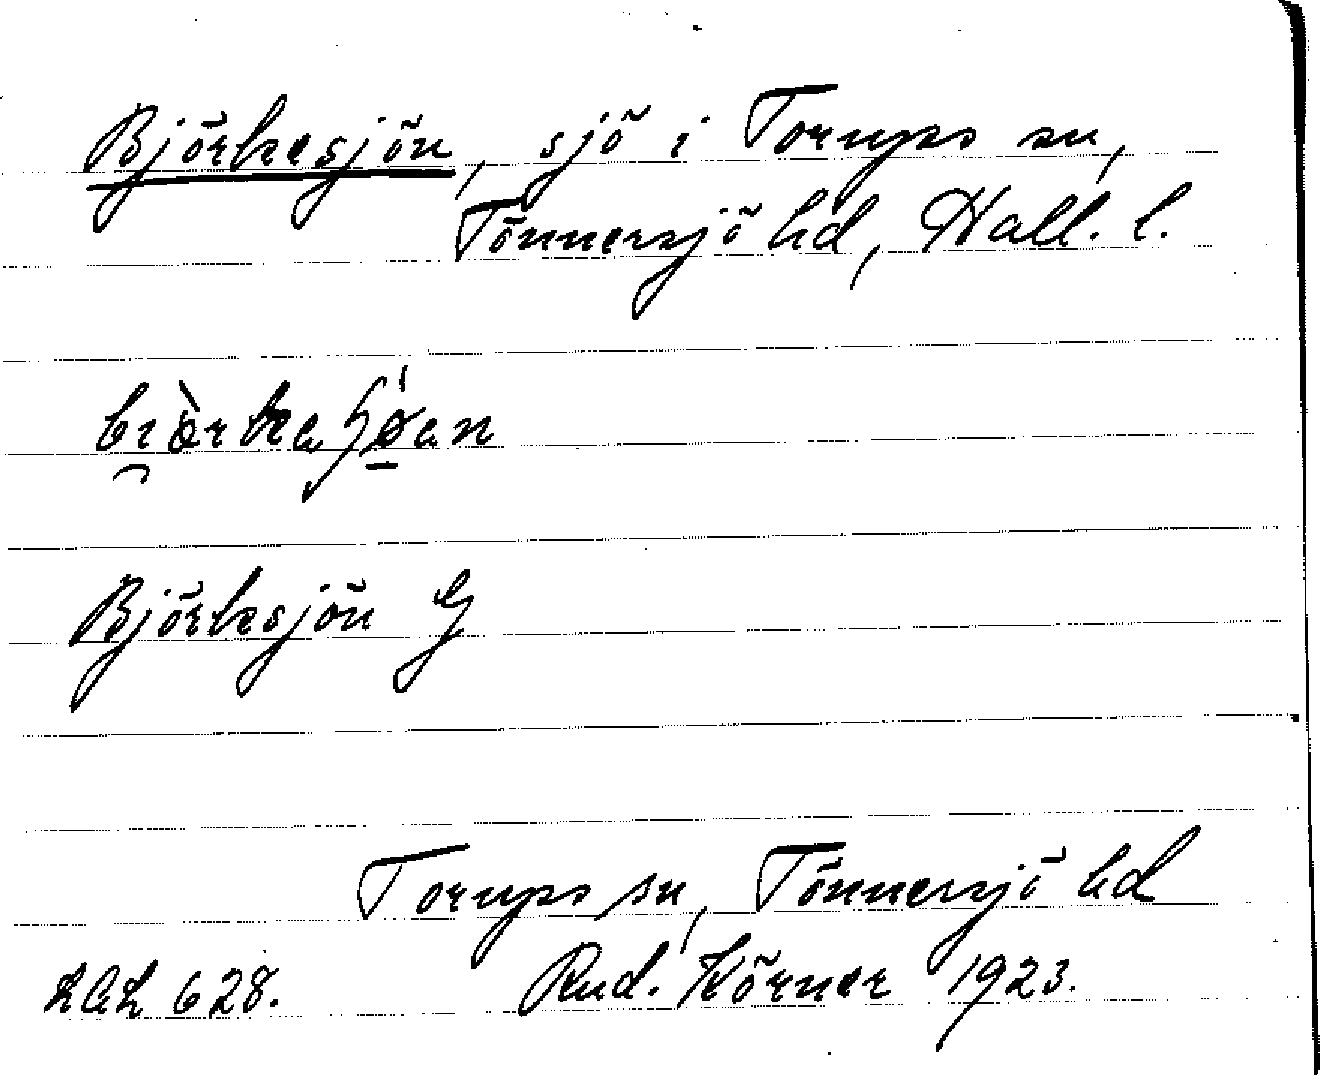 Björkesjön, sjö i Torups sn,
Tönnersjö hd, Hall. l.
Björkesjön G
Torups sn, Tönnersjö hd
LAL 628. Rud. Körner 1923.